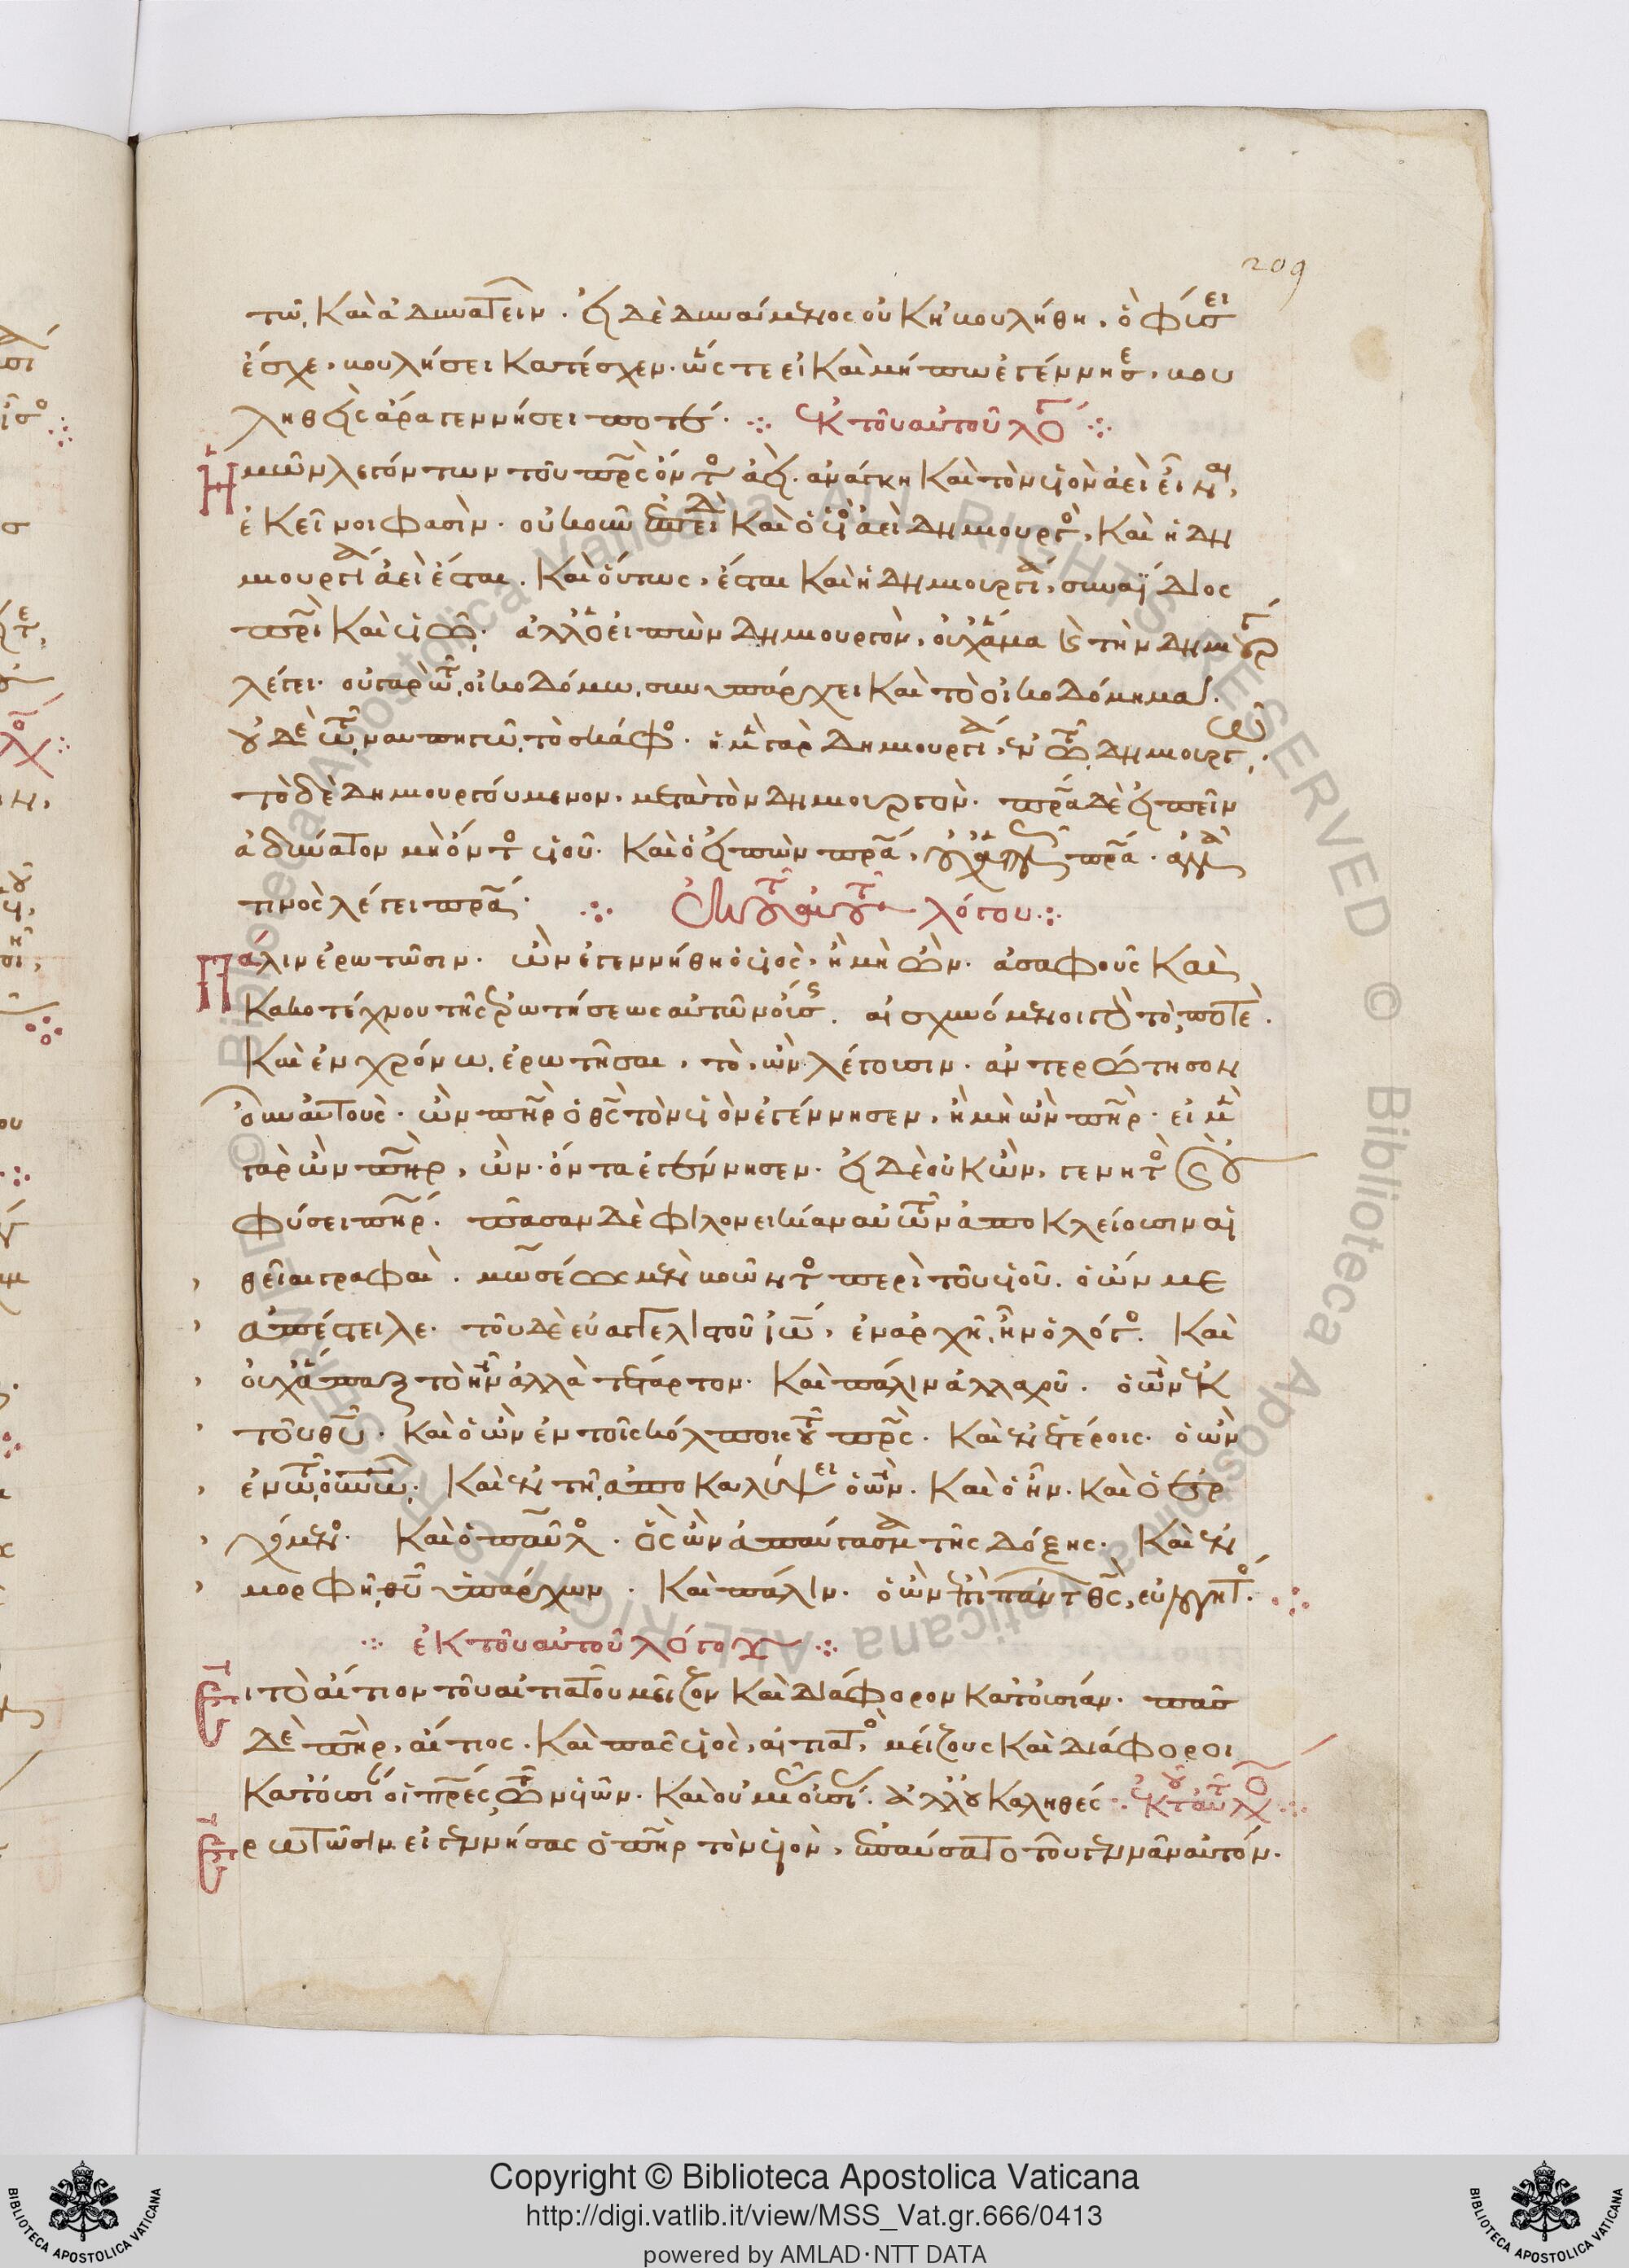 209
τῶ, καὶ ἀδυνατεῖν. εἰ δὲ δυνάμενος οὐκ ἠβουλήθη, ὃ φύσει
ἔσχε, βουλήσει κατέσχεν. ὥς τε εἰ καὶ μήπω ἐγέννησε, βου
ληθεὶς ἄρα γεννήσει ποτέ. ⁘ ἐκ τοῦ αὐτοῦ λόγ ⁘
Ἡμῶν λεγόντων τοῦ πρς ὄντος ἀεὶ. ἀνάγκη καὶ τὸν υἱὸν ἀεὶ εἶναι,
ἐκεῖνοι φασίν. οὐκοῦν ἐπειδὴ καὶ ὁ υἱὸς ἀεὶ δημιουργός, καὶ ἡ δη
μιουργία ἀεὶ ἔσται. καὶ ὄντως, ἔσται καὶ ἡ δημιουργία, συναΐδιος
πρι καὶ υἱῶ. ἀλλ' ὁ εἰπὼν δημιουργὸν, οὐχ ἅμα καὶ τὴν δημιουργ
λέγει. οὐ γὰρ τῶ οἰκοδόμω, συνυπάρχει καὶ τὸ οἰκοδόμημα.
οὐδὲ τῶ ναυπηγῶ, τὸ σκάφος. ἡ μὲν γὰρ δημιουργία, ἐν τῶ δημιουργῶ.
τὸ δὲ δημιουργούμενον, μετὰ τὸν δημιουργὸν. πρα δὲ εἰπεῖν
ἀδύνατον μὴ ὄντος υἱοῦ. καὶ ὁ εἰπὼν πρα, οὐχ ἁπλῶς πρα. ἀλλὰ
τινὸς λέγει πρα. ⁘ ἐκ τοῦ αὐτοῦ λόγου ⁘
Πάλιν ἐρωτῶσιν. ὢν ἐγεννήθη ὁ υἱὸς, ἢ μὴ ὤν. ἀσαφοῦς καὶ
κακοτέχνου τῆς ἐρωτήσεως αὐτῶν οὔσης. αἰσχυνόμενοι γὰρ τὸ, ποτὲ.
καὶ ἐν χρόνω, ἐρωτῆσαι, τὸ, ὢν λέγουσιν. ἀντερώτησον
οὖν αὐτοὺς. ὢν πηρ ὁ θς τὸν υἱὸν ἐγέννησεν, ἢ μὴ ὢν πηρ. εἰ μὲν
γὰρ ὢν πηρ, ὢν. ὄντα ἐγέννησεν. εἰ δὲ οὐκ ὢν, γενητὸς καὶ οὐ
φύσει πηρ. πᾶσαν δὲ φιλονεικίαν αὐτῶν ἀποκλείουσιν αἱ
θεῖαι γραφαὶ. μωσέως μὲν βοῶντος περὶ τοῦ υἱοῦ. ὁ ὤν με
ἀπέστειλε. τοῦ δὲ εὐαγγελιστοῦ ἰω, ἐν ἀρχῆ, ἦν ὁ λόγος. καὶ
οὐχ ἅπαξ τὸ ἦν ἀλλὰ τέταρτον. καὶ πάλιν ἀλλαχοῦ. ὁ ὢν ἐκ
τοῦ θυ. καὶ ὁ ὢν ἐν τοῖς κόλποις τοῦ πρς. καὶ ἐν ἑτέροις. ὁ ὢν
ἐν τῶ οὐνω. καὶ ἐν τῆ ἀποκαλύψει ὁ ὢν. καὶ ὁ ἦν. καὶ ὁ ἐρ
χόμενος. καὶ ὁ παῦλος. ὃς ὢν ἀπαύγασμα τῆς δόξης. καὶ ἐν
μορφῆ θυ ὑπάρχων. καὶ πάλιν. ὁ ὢν ἐπὶ πάντων θς, εὐλογητός. ⁘
⁘ ἐκ τοῦ αὐτοῦ λόγου ⁘
Εἰ τὸ αἴτιον τοῦ αἰτιατοῦ μεῖζον καὶ διάφορον κατ' οὐσίαν. πᾶς
δὲ πηρ, αἴτιος. καὶ πᾶς υἱὸς, αἰτιατὸς, μείζους καὶ διάφοροι
κατ' οὐσίαν οἱ πρες τῶν υἱῶν. καὶ οὐχ ὁμοούσιοι. ἀλλ' οὐκ ἀληθές ⁘ ἐκ τοῦ αὐτοῦ λόγου ⁘
Ἐρωτῶσιν εἰ γεννήσας ὁ πηρ τὸν υἱὸν, ἐπαύσατο τοῦ γεννᾶν αὐτόν.
Copyright © Biblioteca Apostolica Vaticana
http://digi.vatlib.it/view/MSS_Vat.gr.666/0413
powered by AMLAD·NTT DATA
BIBLIOTECA APOSTOLICA VATICANA
BIBLIOTECA APOSTOLICA VATICANA